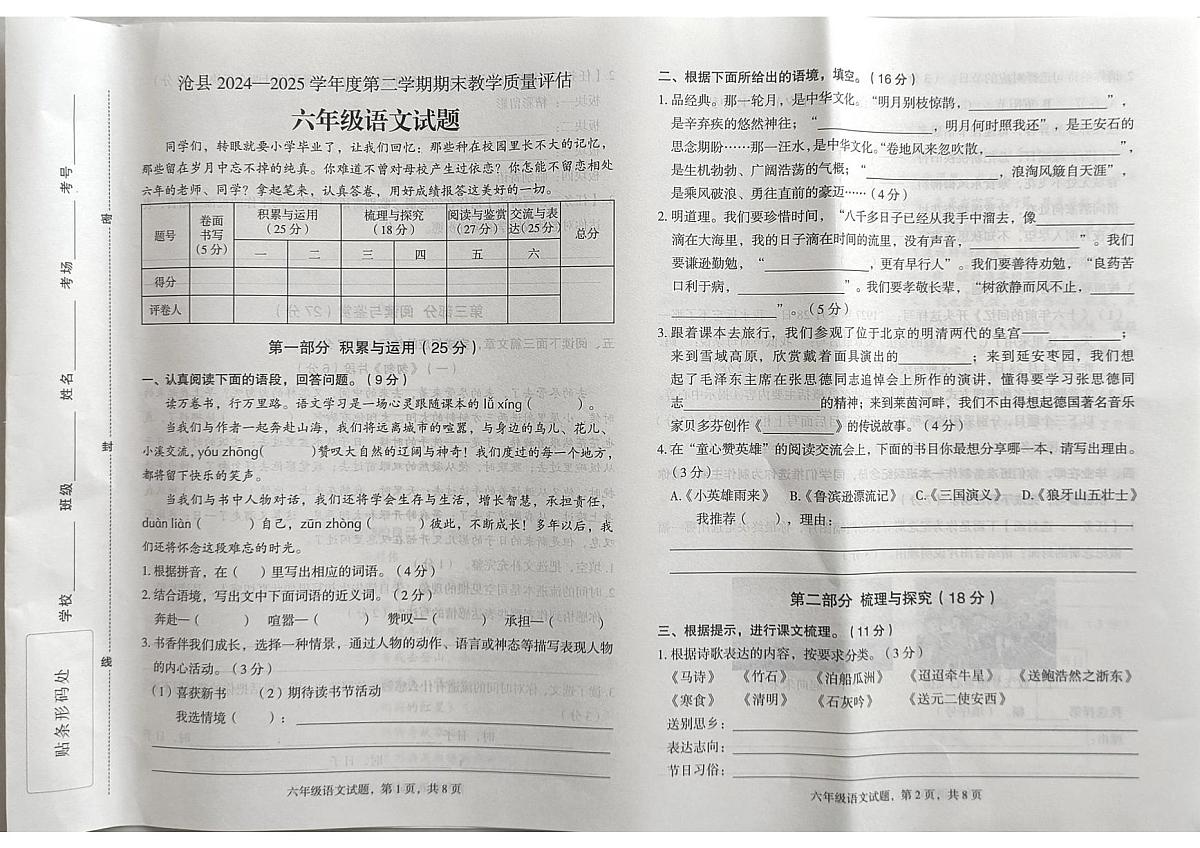 沧县 2024—2025 学年度第二学期期末教学质量评估
六年级语文试题
同学们，转眼就要小学毕业了，让我们回忆：那些种在校园里长不大的记忆，
那些留在岁月中忘不掉的纯真。你难道不曾对母校产生过依恋？你怎能不留恋相处
六年的老师、同学？拿起笔来，认真答卷，用好成绩报答这美好的一切。
题号 卷面书写（5分） 积累与运用（25分） 梳理与探究（18分） 阅读与鉴赏（27分） 交流与表达（25分） 总分
一 二 三 四 五 六
得分
评卷人
第一部分 积累与运用（25分）
一、认真阅读下面的语段，回答问题。（9分）
读万卷书，行万里路。语文学习是一场心灵跟随课本的 lǚ xíng（ ）。
当我们与作者一起奔赴山海，我们将远离城市的喧嚣，与身边的鸟儿、花儿、
小溪交流，yóu zhōng（ ）赞叹大自然的辽阔与神奇！我们度过的每一个地方，
都将留下快乐的笑声。
当我们与书中人物对话，我们还将学会生存与生活，增长智慧，承担责任，
duàn liàn（ ）自己，zūn zhòng（ ）彼此，不断成长！多年以后，我
们还将怀念这段难忘的时光。
1.根据拼音，在（ ）里写出相应的词语。（4分）
2.结合语境，写出文中下面词语的近义词。（2分）
奔赴—（ ） 喧嚣—（ ） 赞叹—（ ） 承担—（ ）
3.书香伴我们成长，选择一种情景，通过人物的动作、语言或神态等描写表现人物
的内心活动。（3分）
（1）喜获新书 （2）期待读书节活动
我选情境（ ）：
六年级语文试题，第1页，共8页
学校 班级 姓名 考场 考号
密 封 线
贴条形码处
二、根据下面所给出的语境，填空。（16分）
1.品经典。那一轮月，是中华文化。“明月别枝惊鹊，____”，
是辛弃疾的悠然神往；“____，明月何时照我还”，是王安石的
思念期盼……那一汪水，是中华文化。“卷地风来忽吹散，____”，
是生机勃勃、广阔浩荡的气概；“____，浪淘风簸自天涯”，
是乘风破浪、勇往直前的豪迈……（4分）
2.明道理。我们要珍惜时间，“八千多日子已经从我手中溜去，像____
滴在大海里，我的日子滴在时间的流里，没有声音，____”。我们
要谦逊勤勉，“____，更有早行人”。我们要善待劝勉，“良药苦
口利于病，____”。我们要孝敬长辈，“树欲静而风不止，____
____”。（5分）
3.跟着课本去旅行，我们参观了位于北京的明清两代的皇宫——____；
来到雪域高原，欣赏戴着面具演出的____；来到延安枣园，我们想
起了毛泽东主席在张思德同志追悼会上所作的演讲，懂得要学习张思德同
志____的精神；来到莱茵河畔，我们不由得想起德国著名音乐
家贝多芬创作《____》的传说故事。（4分）
4.在“童心赞英雄”的阅读交流会上，下面的书目你最想分享哪一本，请写出理由。
（3分）
A.《小英雄雨来》 B.《鲁滨逊漂流记》 C.《三国演义》 D.《狼牙山五壮士》
我推荐（ ），理由：
第二部分 梳理与探究（18分）
三、根据提示，进行课文梳理。（11分）
1.根据诗歌表达的内容，按要求分类。（3分）
《马诗》 《竹石》 《泊船瓜洲》 《迢迢牵牛星》 《送鲍浩然之浙东》
《寒食》 《清明》 《石灰吟》 《送元二使安西》
送别思乡：
表达志向：
节日习俗：
六年级语文试题，第2页，共8页